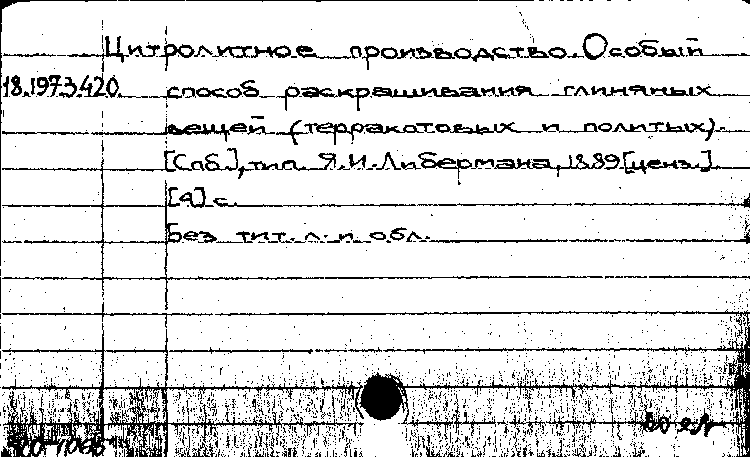 Цитролитное производство. Особый
18.1973.420. способ раскрашивания глиняных
вещей (терракотовых и политых).
[Спб.], тип. Я.И. Либермана, 1889 [ценз.].
[4] с.
Без тит. л. и обл.